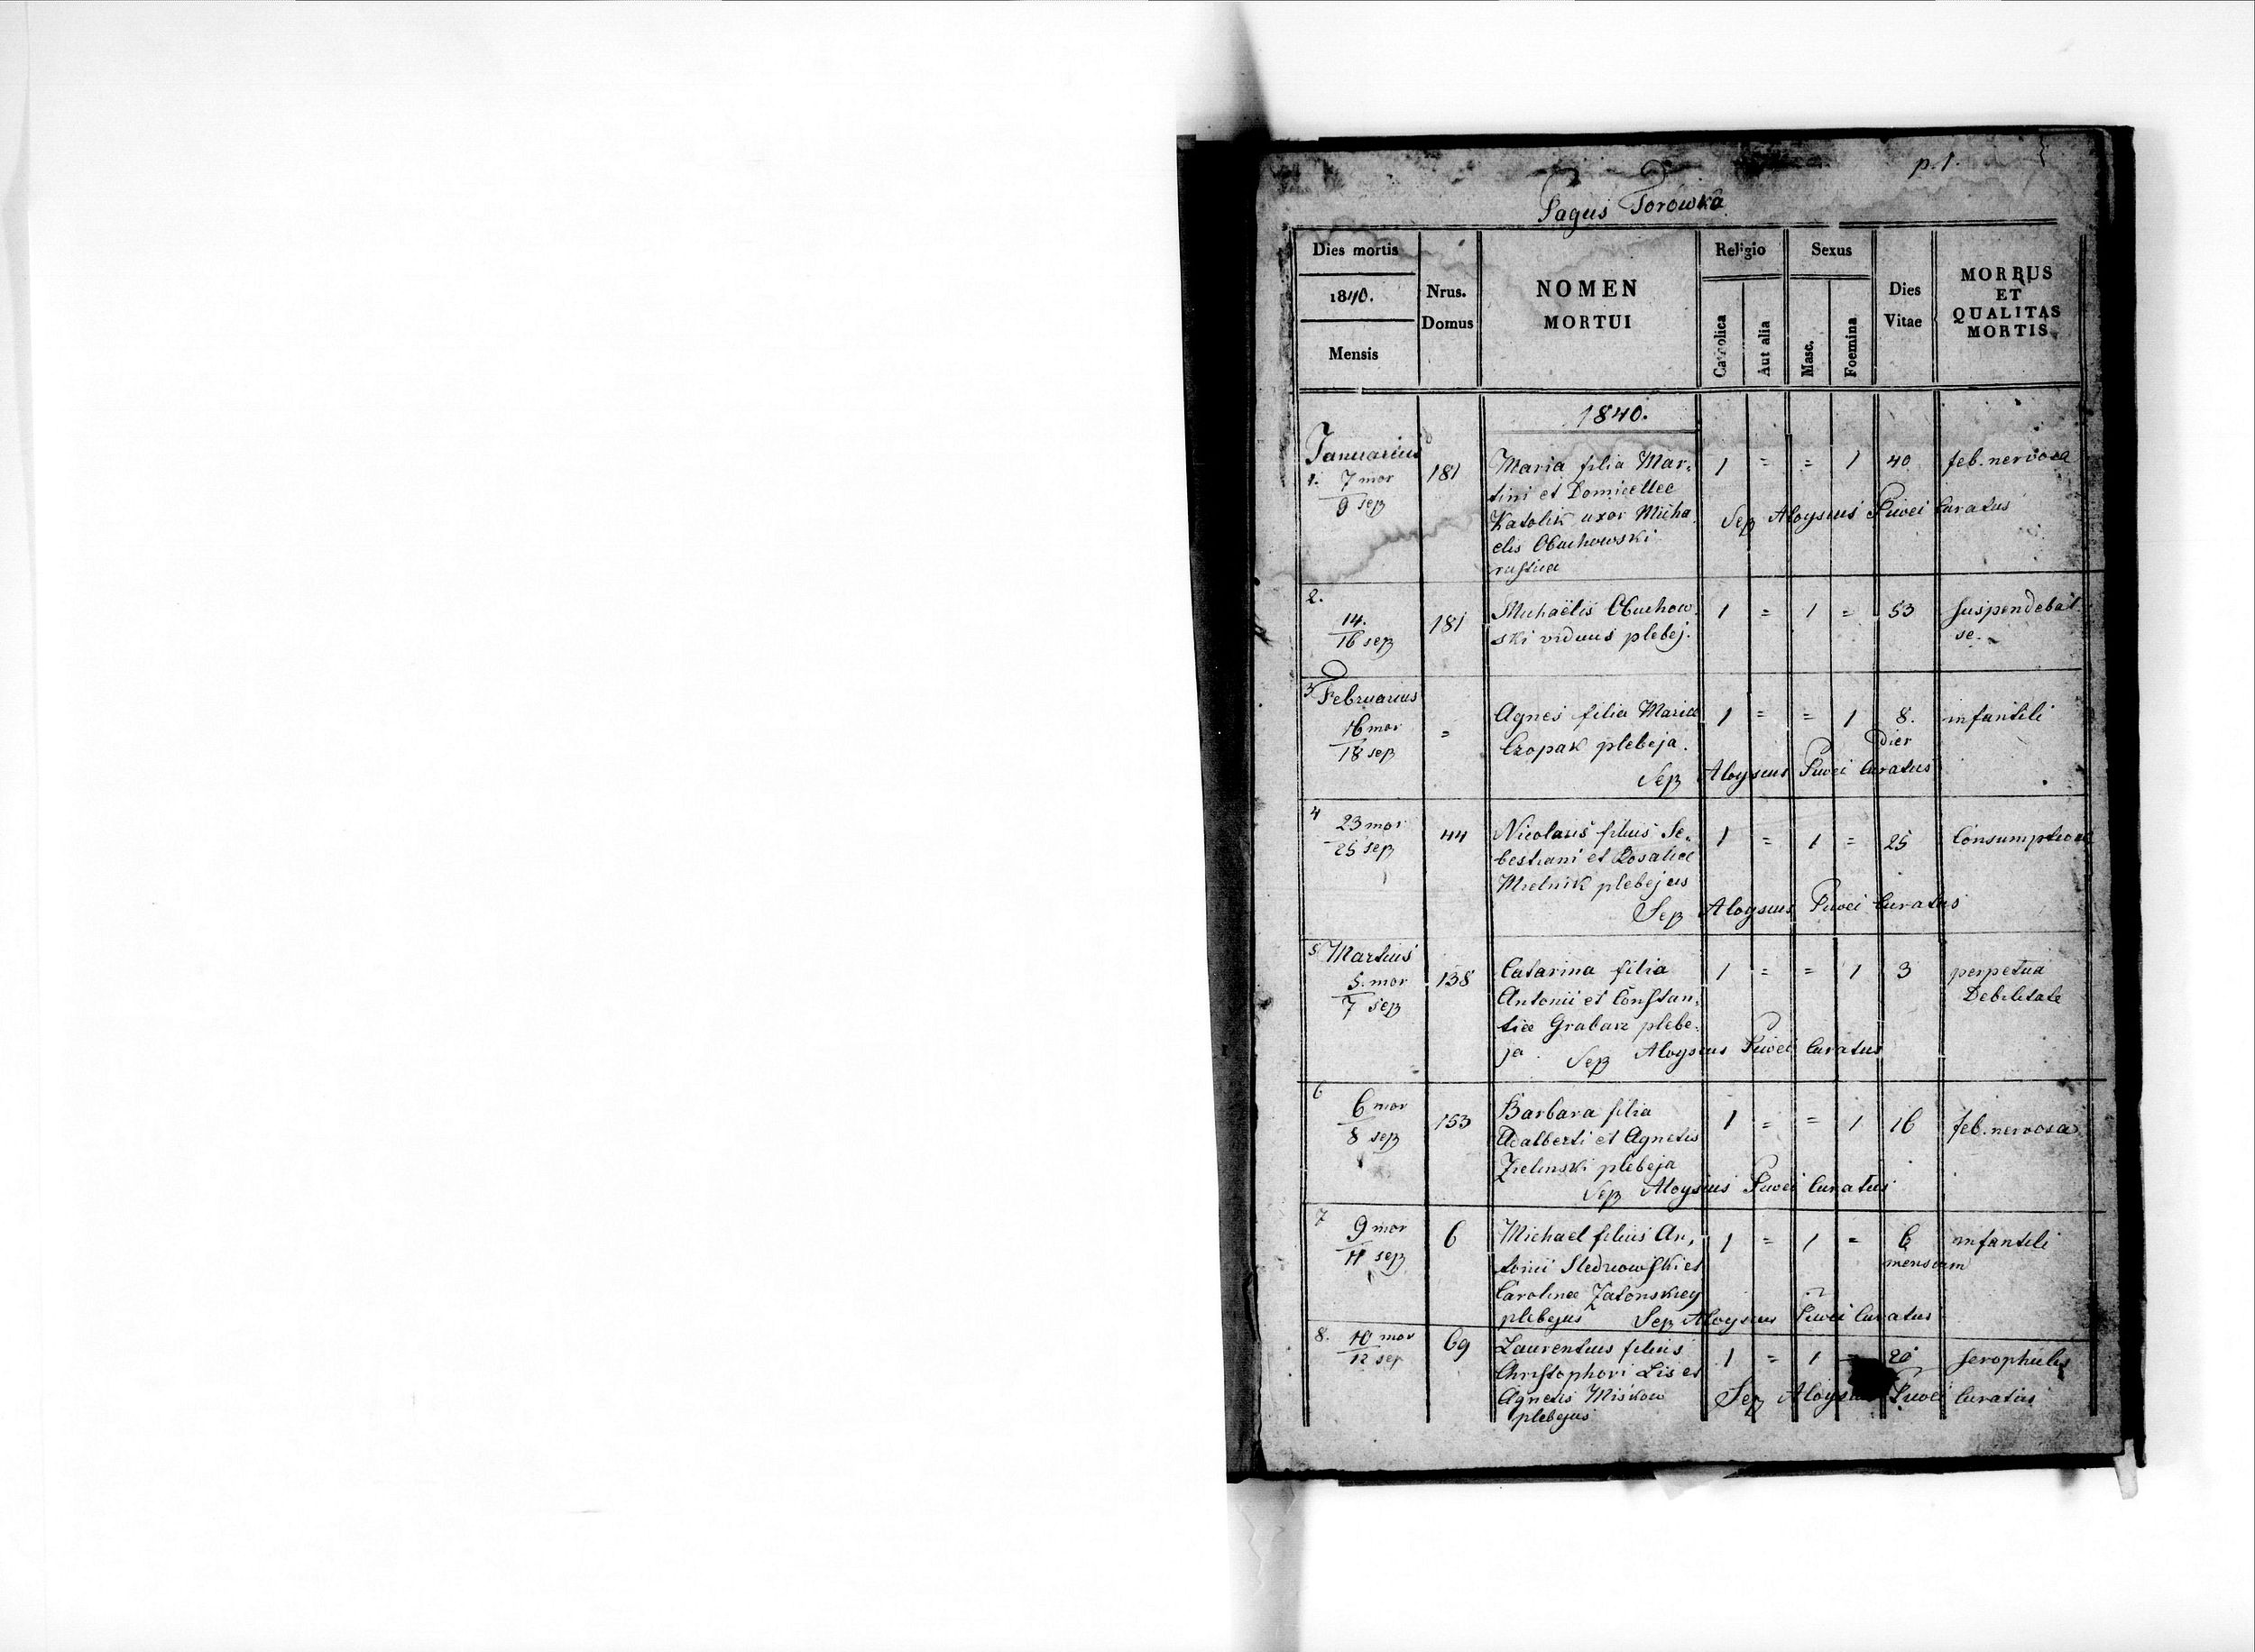 p. 1.
Pagus Torówka
Dies mortis
1840.
Mensis
Nrus.
Domus
NOMEN
MORTUI
Religio
Catholica
Aut alia
Sexus
Masc.
Foemina
Dies
Vitae
MORBUS
ET
QUALITAS
MORTIS
1840.
Januarius
1. 7 mor
9 sep
181
Maria filia Mar-
tini et Domicellae
Katolik uxor Micha
elis Obuchowski
rustica
1 = = 1 40 feb. nervosa
Sep Aloysius Piwei Curatus
2.
14.
16 sep
181
Michaëlis Obuchow
ski viduus plebej.
1 = 1 = 53 suspendebat
se.
3 Februarius
16 mor
18 sep
=
Agnes filia Mariae
Czopak plebeja.
1 = = 1 8. infantili
dier
Sep Aloysius Piwei Curatus
4 23 mor
25 sep
44
Nicolaus filius Se-
bestiani et Rosaliae
Mielnik plebejus
1 = 1 = 25 Consumptione
Sep Aloysius Piwei Curatus
5 Martius
5. mor
7 sep
138
Catarina filia
Antonii et Constan-
tiae Grabarz plebe-
ja.
1 = = 1 3 perpetua
Debilitate
Sep Aloysius Piwei Curatus
6
6 mor
8 sep
153
Barbara filia
Adalberti et Agnetis
Zielinski plebeja
1 = = 1 16 feb. nervosa
Sep Aloysius Piwei Curatus
7
9 mor
11 sep
6
Michael filius An-
tonii et
Carolinae Zatonskiey
plebejus
1 = 1 = 6 infantili
mensium
Sep Aloysius Piwei Curatus
8. 10 mor
12 sep
69
Laurentius filius
Christophori Lis et
Agnetis Miśkow
plebejus
1 = 1 = 20 scrophulis
Sep Aloysius Piwei Curatus